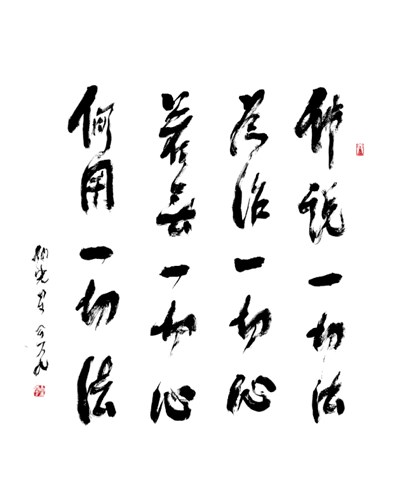 佛说一切法
为治一切心
若无一切心
何用一切法